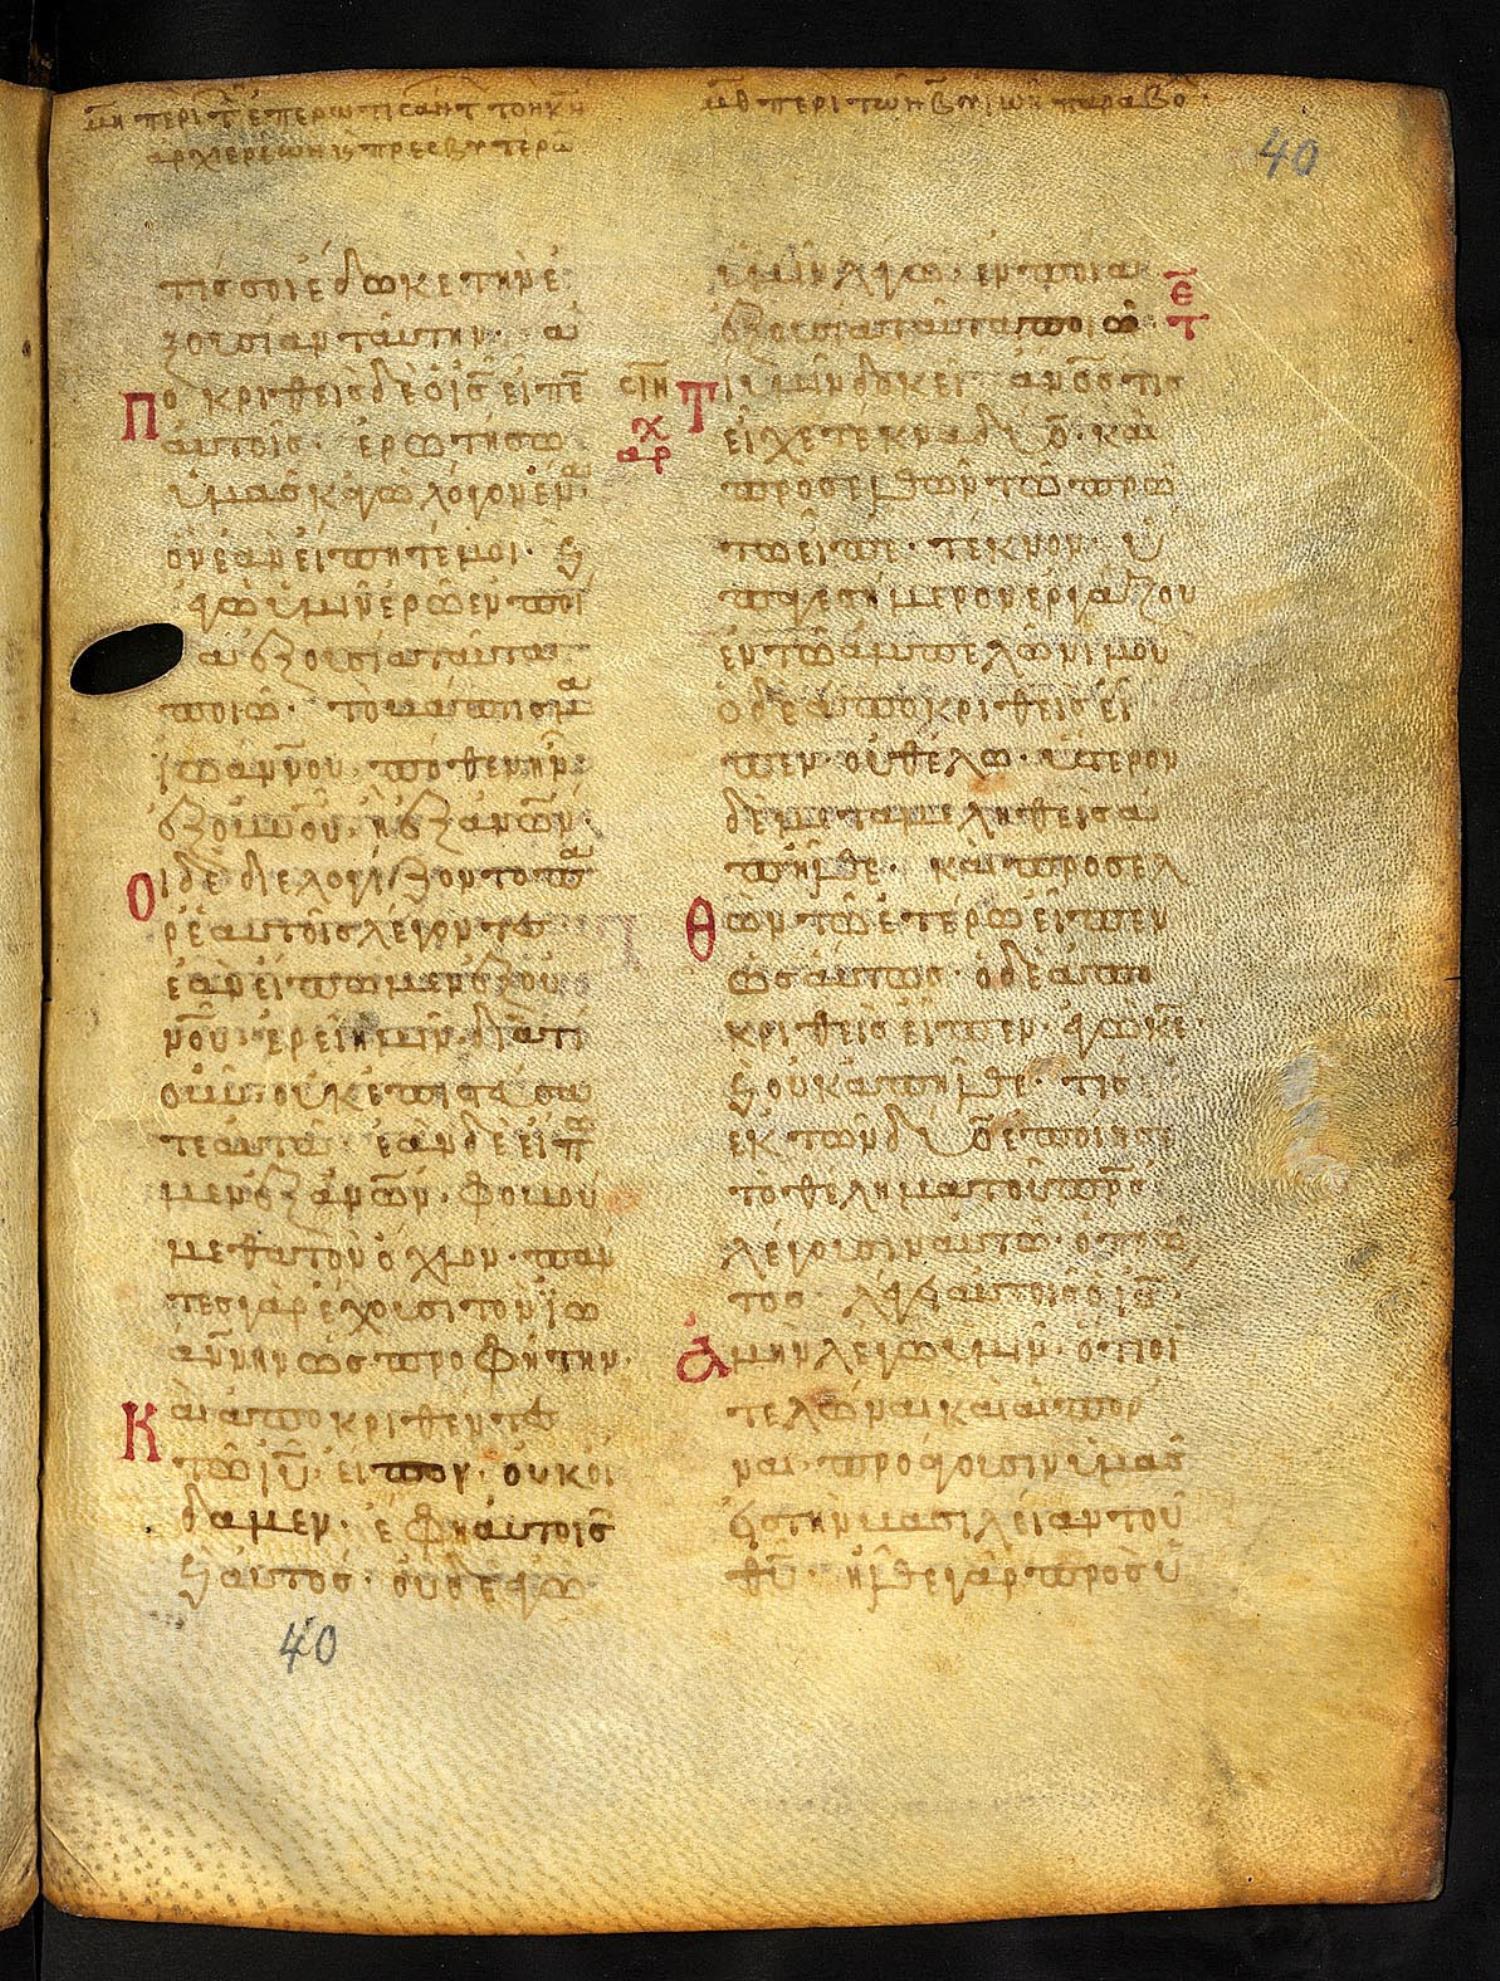 μη περι τ επερωτισαντ τον κν
αρχιερεων κ̣ πρεσβυτερω
μθ περι των β υιων παραβο
40
τίς σοι ἔδωκε τὴν ἐ
ξουσίαν ταύτην· ἀ
Πο κριθεὶς δὲ ὁ ις εἶπε
αὐτοῖς· ἐρωτήσω
ὑμᾶς κἀγὼ λόγον ἕνα·
ὃν ἐὰν εἴπητέ μοι· κ
ἀγὼ ὑμῖν ἐρῶ ἐν ποί
α ἐξουσία ταῦτα
ποιῶ· τὸ βάπτισμα
ἰωάννου πόθεν ἦν·
ἐξ οὐνου, ἢ ἐξ ανων·
Οἱ δὲ διελογίζοντο πα
ρ ἑαυτοῖς λέγοντες·
ἐὰν εἴπωμεν ἐξ ου
νου· ἐρεῖ ἡμῖν· διατί
οὖν οὐκ ἐπιστεύσα
τε αὐτῶ· ἐὰν δὲ εἴπω
μεν ἐξ ανων· φοβού
μεθα τὸν ὄχλον· πάν
τες γὰρ ἔχουσι τὸν ἰω
άννην ὡς προφήτην·
Καὶ ἀποκριθέντες
τῶ ιυ· εἶπον· οὐκ οἴ
δαμεν· ἔφη αὐτοῖς
κ αὐτός· οὐδὲ ἐγὼ
40
ὑμῖν λέγω· ἐν ποία
ἐξουσία ταῦτα ποιῶ·
ε
τ
ειπ
χ
αρ
Τί ὑμῖν δοκεῖ· ανος τις
εἶχε τέκνα δύο· καὶ
προσελθὼν τῶ πρώ
τω εἶπε· τέκνον· ὕ
παγε σήμερον ἐργάζου
ἐν τῶ ἀμπελῶνί μου
ὁ δὲ ἀποκριθεὶς εἶ
πεν· οὐ θέλω· ὕστερον
δὲ μεταμεληθεὶς ἀ
πῆλθε· καὶ προσελ
Θὼν τῶ ἑτέρω εἶπεν
ὡσαύτως· ὁ δὲ ἀπο
κριθεὶς εἶπεν· ἐγὼ κε·
κ οὐκ ἀπῆλθε· τίς
ἐκ τῶν δύο ἐποίησε
τὸ θέλημα τοῦ προς·
λέγουσιν αὐτῶ· ὁ πρῶ
τος· λέγει αὐτοῖς ὁ ις·
Ἀμὴν λέγω ὑμῖν· ὅτι οἱ
τελῶναι καὶ αἱ πόρ
ναι· προάγουσιν ὑμᾶς
εἰς τὴν βασιλείαν τοῦ
θυ· ἦλθε γὰρ πρὸς ὑ